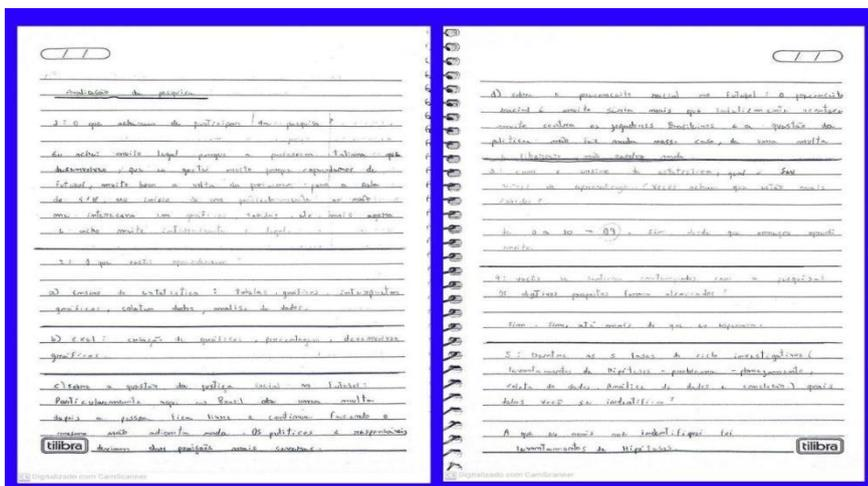 Avaliação da pesquisa
1: O que acharam de participar da pesquisa?
Eu achei muito legal porque a professora Tatiana que
desenvolveu, que eu gostei muito porque capendemos de
futebol, muito bom a volta da professora para a sala
de aula, no início eu
me interessava em gráficos, tabelas, até mais agora
e acho muito interessante e legal.
2: O que vocês aprenderam?
a) Ensino de estatística: tabelas, gráficos, interpretar
gráficos, coletar dados, analise de dados.
b) Exel: criação de gráficos, porcentagem, desenvolver
gráficos.
c) Sobre a questão da justiça social no futebol:
Particularmente aqui no Brasil dão uma multa
depois a pessoa fica livre e continua fazendo o
mesmo não adianta nada. Os politicos e responsáveis
deviam dar punições mais severas.
tilibra
Digitalizado com CamScanner
d) sobre o preconceito racial no futebol: o preconceito
racial é muito sério mais que infelizmente acontece
muito contra os jogadores Brasileiros e a questão da
política não faz nada nesse caso, dá uma multa
e liberam não resolve nada
3: com o ensino de estatística, qual o seu
nível de aprendizagem? Vocês acham que estão mais
de 0 a 10 → 09, sim, desde que começou aprendi
muito.
4: vocês se sentiram contemplados com a pesquisa?
Os objetivos propostos foram alcançados?
Sim. Sim, até mais do que eu esperava.
5: Dentre as 5 fases do ciclo investigativo (
levantamentos de Hipóteses - problema - planejamento,
coleta de dados, Análise de dados e conclusão) quais
delas você se indentificou?
A que eu mais me indentifiquei foi
levantamentos de Hipóteses.
tilibra
Digitalizado com CamScanner